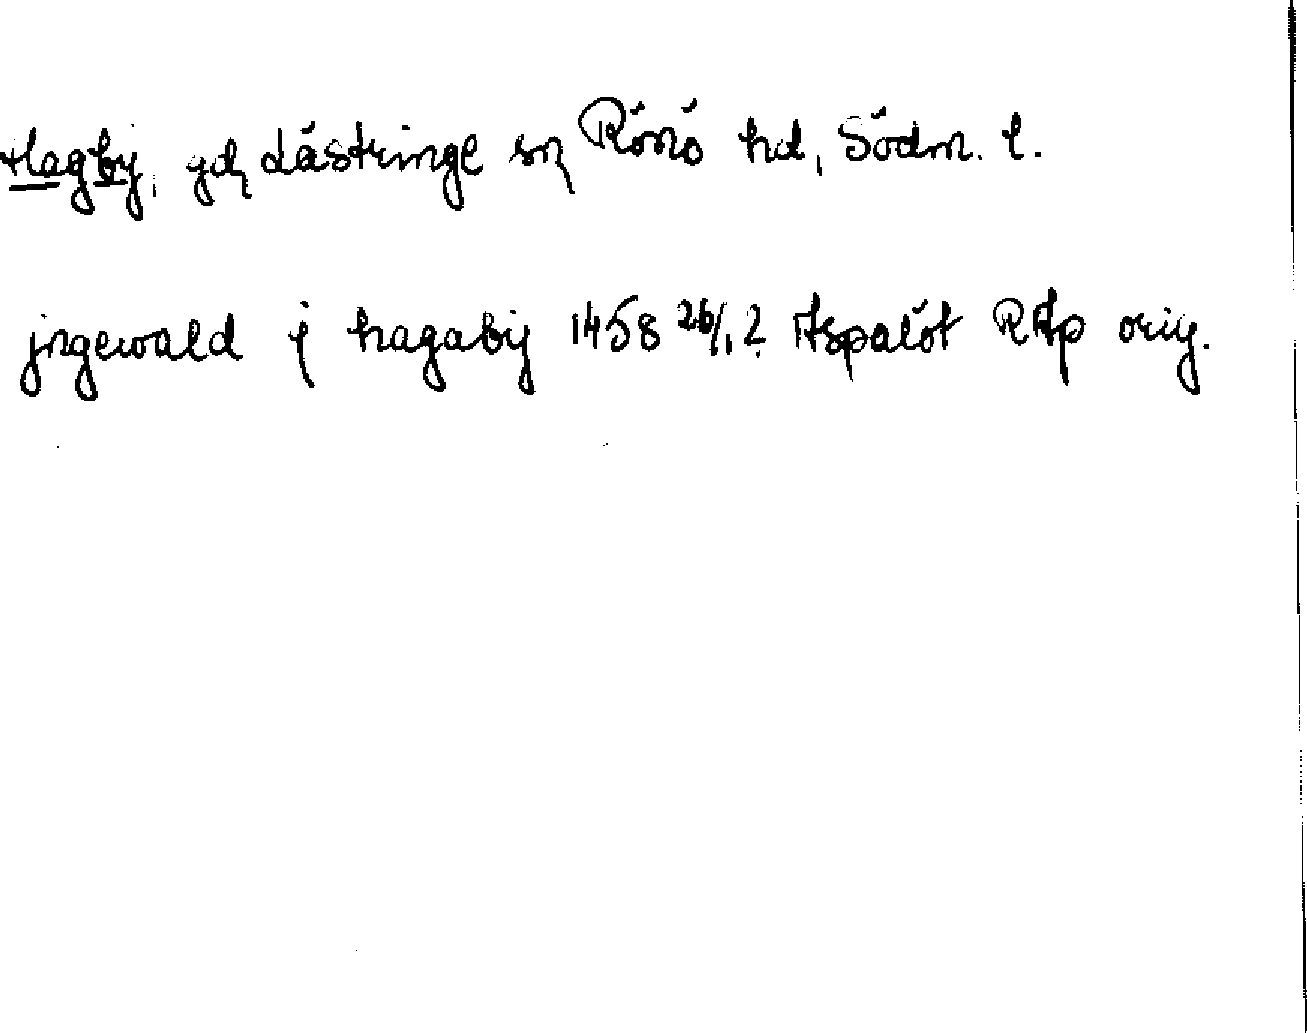 Hagby, gd, Lästringe sn Rönö hd, Södm. l.
jngewald j hagaby 1458 26/1 ? Aspalöt RAp orig.